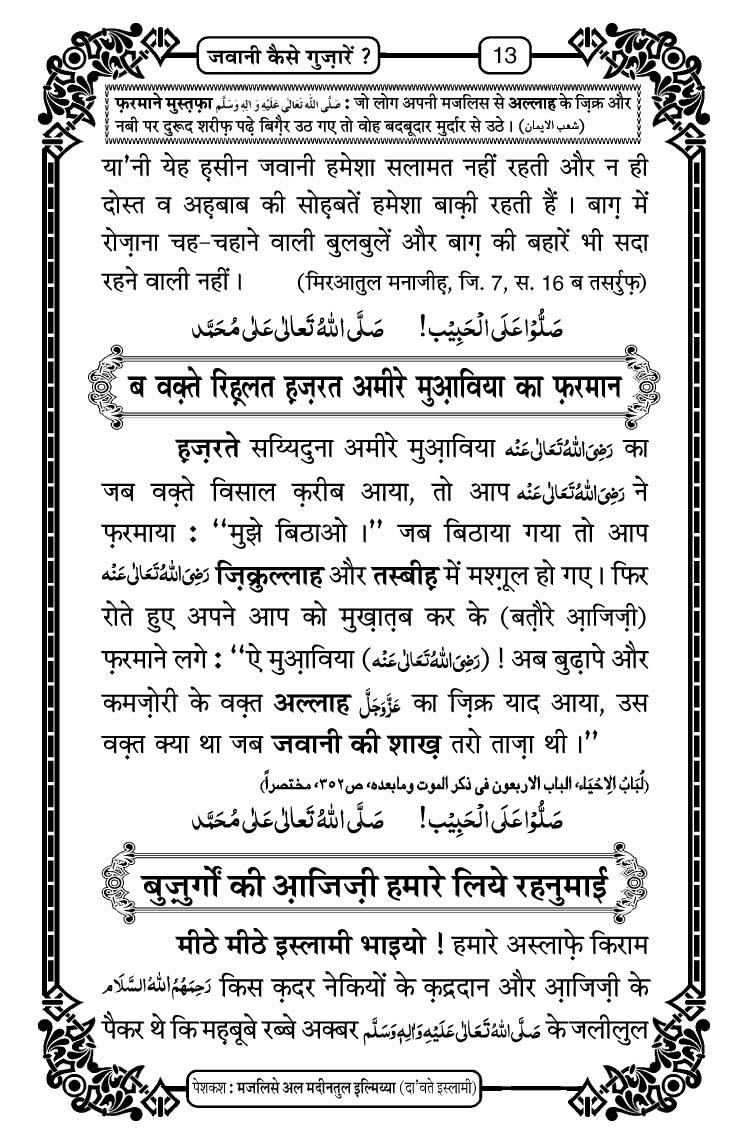 जवानी कैसे गुज़ारें ?
13
फ़रमाने मुस्त़फ़ा صَلَّى اللهُ تَعَالٰى عَلَيْهِ وَاٰلِهٖ وَسَلَّم : जो लोग अपनी मजलिस से अल्लाह के ज़िक्र और
नबी पर दुरूद शरीफ़ पढ़े बिग़ैर उठ गए तो वोह बदबूदार मुर्दार से उठे । (شعب الایمان)
या'नी येह ह़सीन जवानी हमेशा सलामत नहीं रहती और न ही
दोस्त व अह़बाब की सोह़बतें हमेशा बाक़ी रहती हैं । बाग़ में
रोज़ाना चह-चहाने वाली बुलबुलें और बाग़ की बहारें भी सदा
रहने वाली नहीं । (मिरआतुल मनाजीह़, जि. 7, स. 16 ब तसर्रुफ़)
صَلُّوْا عَلَى الْحَبِيْب! صَلَّى اللهُ تَعَالٰى عَلٰى مُحَمَّد
ब वक़्ते रिह़्लत ह़ज़रत अमीरे मुआ़विया का फ़रमान
ह़ज़रते सय्यिदुना अमीरे मुआ़विया رَضِىَ اللهُ تَعَالٰى عَنْه का
जब वक़्ते विसाल क़रीब आया, तो आप رَضِىَ اللهُ تَعَالٰى عَنْه ने
फ़रमाया : ''मुझे बिठाओ ।'' जब बिठाया गया तो आप
رَضِىَ اللهُ تَعَالٰى عَنْه ज़िक्रुल्लाह और तस्बीह़ में मश्ग़ूल हो गए । फिर
रोते हुए अपने आप को मुख़ात़ब कर के (बत़ौरे आ़जिज़ी)
फ़रमाने लगे : ''ऐ मुआ़विया (رَضِىَ اللهُ تَعَالٰى عَنْه) ! अब बुढ़ापे और
कमज़ोरी के वक़्त अल्लाह عَزَّوَجَلَّ का ज़िक्र याद आया, उस
वक़्त क्या था जब जवानी की शाख़ तरो ताज़ा थी ।''
(لُبَابُ الْاِحْيَاء، الباب الاربعون فی ذکر الموت ومابعده، ص۳۵۲، مختصراً)
صَلُّوْا عَلَى الْحَبِيْب! صَلَّى اللهُ تَعَالٰى عَلٰى مُحَمَّد
बुज़ुर्गों की आ़जिज़ी हमारे लिये रहनुमाई
मीठे मीठे इस्लामी भाइयो ! हमारे अस्लाफ़े किराम
رَحِمَهُمُ اللهُ السَّلَام किस क़दर नेकियों के क़द्रदान और आ़जिज़ी के
पैकर थे कि मह़बूबे रब्बे अक्बर صَلَّى اللهُ تَعَالٰى عَلَيْهِ وَاٰلِهٖ وَسَلَّم के जलीलुल
पेशकश : मजलिसे अल मदीनतुल इल्मिय्या (दा'वते इस्लामी)